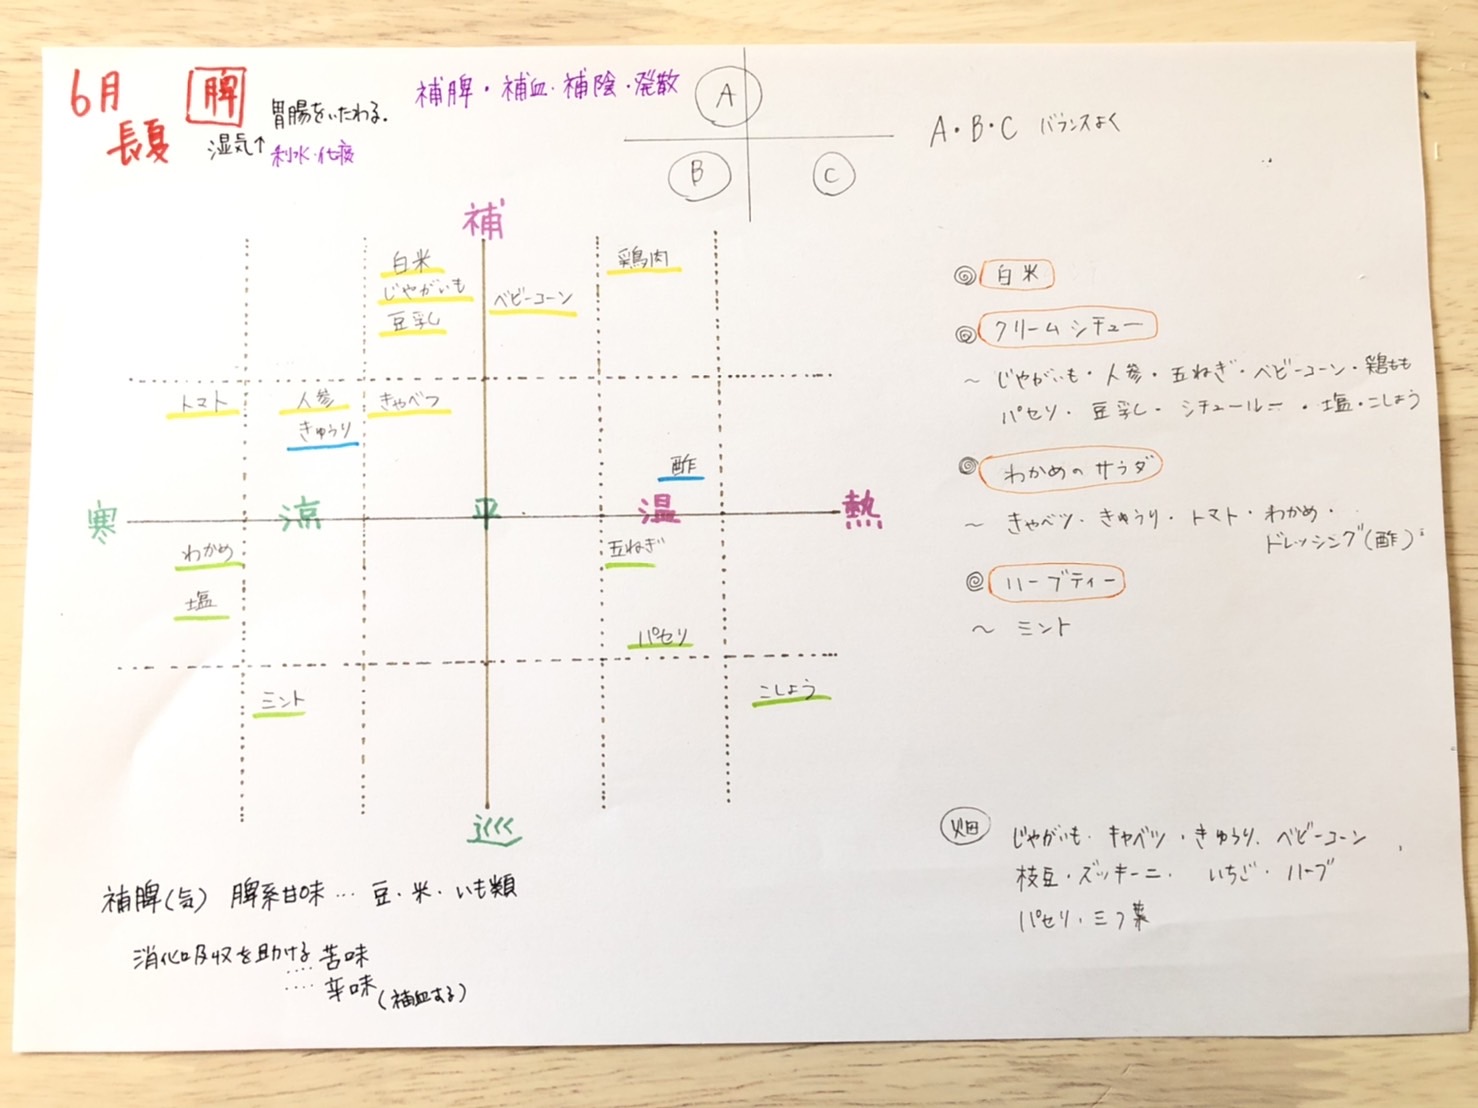 6月
長夏
脾
湿気↑
胃腸をいたわる.
利水・化痰
補脾・補血・補陰・発散
A
B
C
A・B・C バランスよく
補
白米
じゃがいも
豆乳
ベビーコーン
鶏肉
トマト
人参
きゅうり
きゃべつ
酢
寒
涼
平
温
熱
わかめ
塩
玉ねぎ
パセリ
ミント
こしょう
巡
補脾(気) 脾系甘味… 豆・米・いも類
消化吸収を助ける
…. 苦味
…. 辛味(補血する)
白米
クリームシチュー
〜 じゃがいも・人参・玉ねぎ・ベビーコーン・鶏もも
パセリ・豆乳・シチュールー・塩・こしょう
わかめのサラダ
〜 きゃベツ・きゅうり・トマト・わかめ・
ドレッシング(酢)
ハーブティー
〜 ミント
畑
じゃがいも・キャベツ・きゅうり.ベビーコーン
枝豆・ズッキーニ・いちご・ハーブ
パセリ・三つ葉